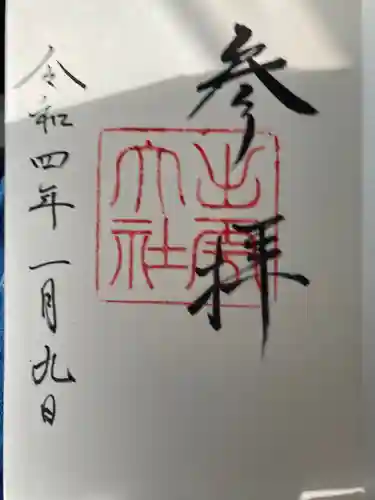 参拝
出雲
大社
令和四年一月九日